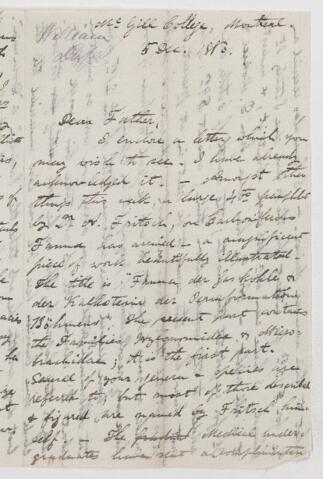 McGill College, Montreal
5 Dec. 1883.
William
Dear Father,
I enclose a letter which you
may wish to see. I have already
acknowledged it. - Amongst other
things this week a large 4to pamphlet
by Dr. A. Fritsch, on Carboniferous
Fauna has arrived - a magnificent
piece of work beautifully illustrated.
The title is "Fauna der Gaskohle &
der Kalksteine der Permformation
Böhmens". The present part contains
the Families & Micro-
brachidae; it is the first part.
Several of your genera & species are
referred to, but most of those described
& figured are named by Fritsch him-
self. - The Medical under-
graduates have sent a complimentary